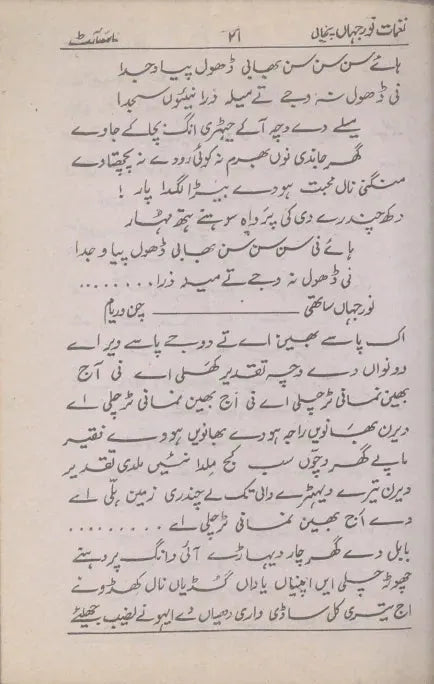 نغمات نورجہاں پنجابی ۷۱
ہائے سن سن سن بھابی ڈھول پیا وجدا
نی ڈھول نہ وجے تے میلہ ذرا نیئوں سجدا
میلے دے وچہ آکے جیہڑی انگ بچا کے جاوے
گھر جاندی نوں بھرم نہ کوئی رووے نہ پچھتاوے
منگنی نال محبت ہووے بیڑا لگدا پار !
دکھ چندرے دی کی پرواہ سوہنے ہتھ مہار
ہائے نی سن سن سن بھابی ڈھول پیا وجدا
نی ڈھول نہ وجے تے میلہ ذرا ........
نورجہاں ساتھی ــــــــــــــــ چن وریام
اک پاسے بھین اے تے دوجے پاسے ویر اے
دونواں دے وچہ تقدیر کھلی اے نی آج
بھین نمانی ٹر چلی اے نی اج بھین نمانی ٹر چلی اے
ویرن بھانویں راجہ ہووے بھانویں ہووے فقیر
ماپے گھر وچوں سب کج ملدا نئیں ملدی تقدیر
ویرن تیرے ویہڑے دی اے چندری زمین ہلی اے
وے اج بھین نمانی ٹر چلی اے .........
بابل دے گھر چار دیہاڑے آئی وانگ پردیسنے
چھوڑ چلی ایں اپنیاں یاداں گڈیاں نال کھڈونے
اج تیری کل ساڈی واری دھیاں دے ایہو نے نصیب جھلیئے